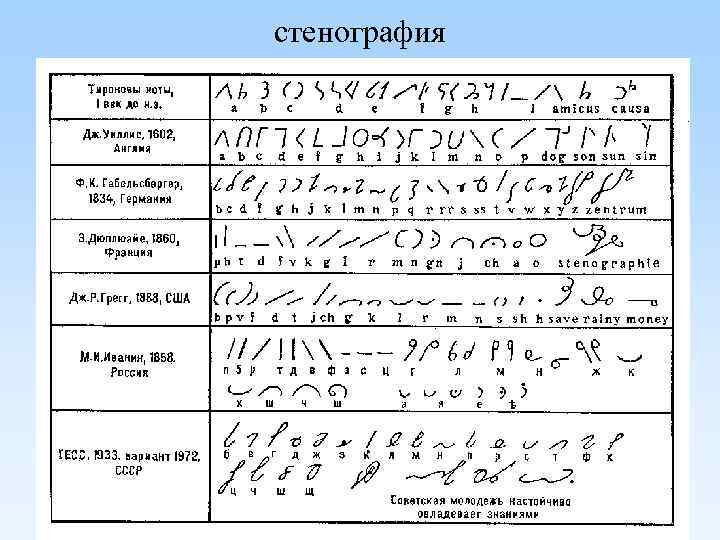 стенография
Тироновы ноты,
I век до н.э.
a b c d e f g h l amicus causa
Дж. Уиллис, 1602,
Англия
a b c d e f g h i j k l m n o p dog son sun sin
Ф.К. Габельсбергер,
1834, Германия
b c d f g h j k l m n p q r rr s ss t v w x y z zentrum
Э. Дюплюайе, 1860,
Франция
p b t d f v k g l r m n gn j ch a o stenographie
Дж.Р. Грегг, 1888, США
b p v f d t j ch g k l r m n s sh h save rainy money
М.И. Иванин, 1858.
Россия
п б р т д в ф з с ц г л м н ж к
х щ ч ш а я е ѣ
ГЕСС. 1933. вариант 1972,
СССР
б в г д ж з к л м н п р с т ф х
ц ч ш щ
Советская молодежь настойчиво
овладевает знаниями